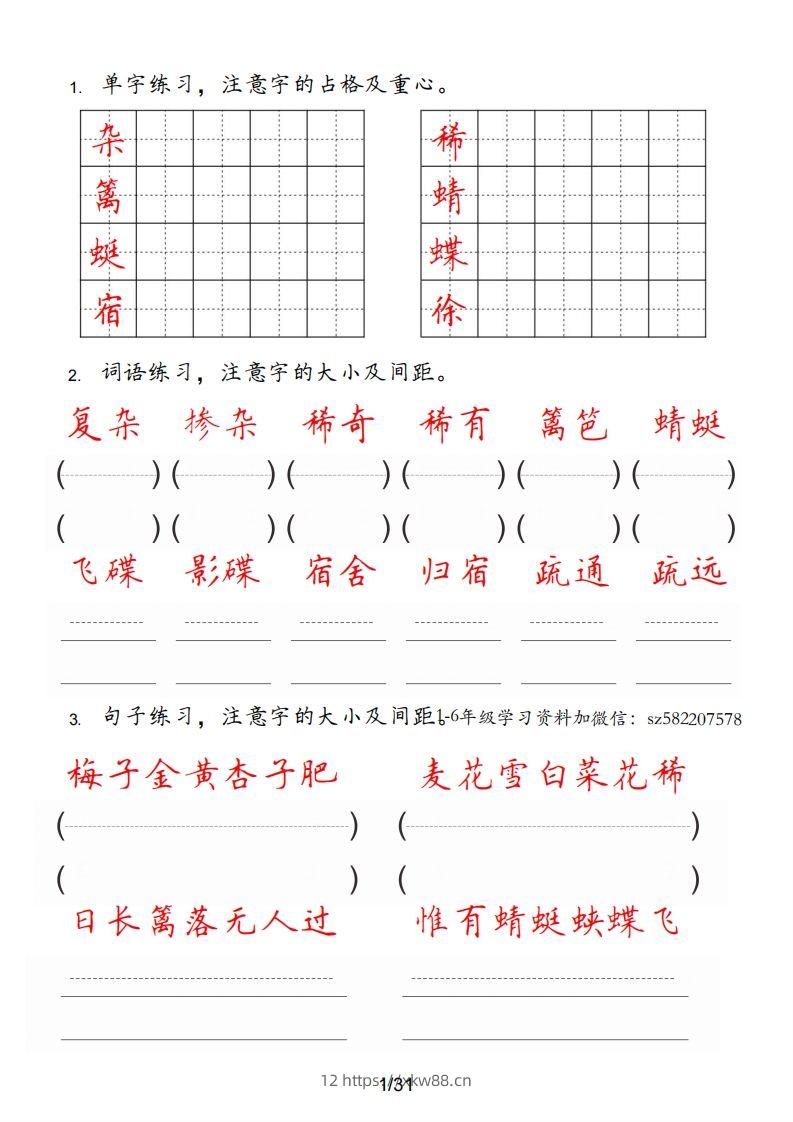 1. 单字练习，注意字的占格及重心。
杂 稀
篱 蜻
蜓 蝶
宿 徐
2. 词语练习，注意字的大小及间距。
复杂 掺杂 稀奇 稀有 篱笆 蜻蜓
( ) ( ) ( ) ( ) ( ) ( )
( ) ( ) ( ) ( ) ( ) ( )
飞碟 影碟 宿舍 归宿 疏通 疏远
3. 句子练习，注意字的大小及间距。1-6年级学习资料加微信：sz582207578
梅子金黄杏子肥 麦花雪白菜花稀
( ) ( )
( ) ( )
日长篱落无人过 惟有蜻蜓蛱蝶飞
12 https://xkw88.cn
1/31